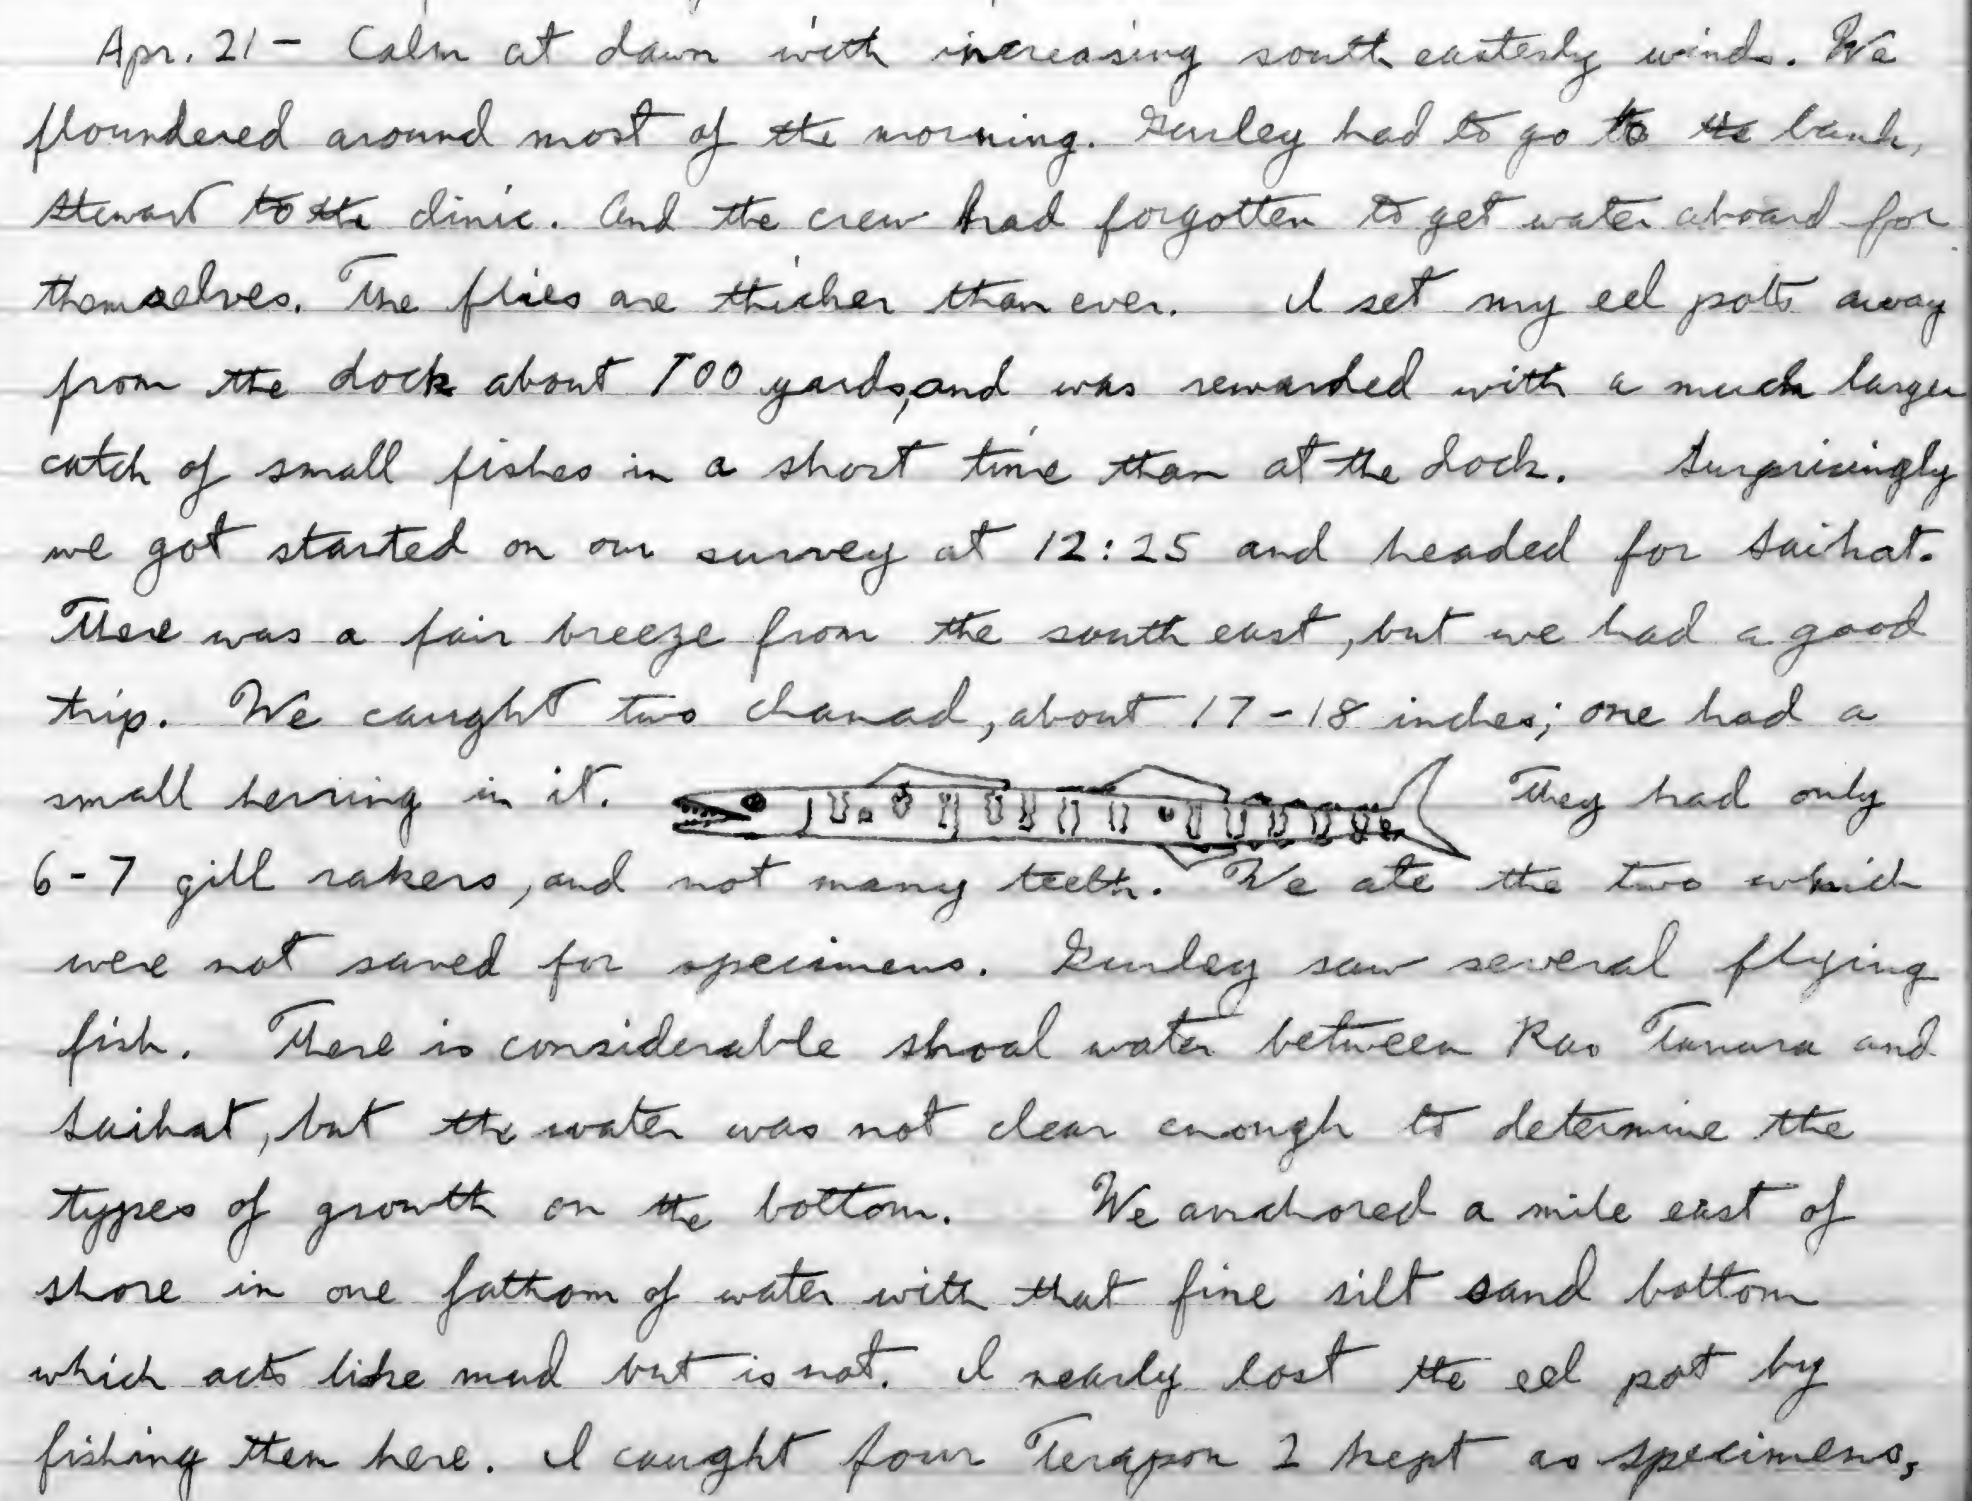 Apr. 21 - Calm at dawn with increasing south easterly winds. We
floundered around most of the morning. Gurley had to go to the bank,
Stewart to the clinic. And the crew had forgotten to get water aboard for
themselves. The flies are thicker than ever. I set my eel pots away
from the dock about 100 yards, and was rewarded with a much larger
catch of small fishes in a short time than at the dock. Surprisingly
we got started on our survey at 12:25 and headed for Saihat.
There was a fair breeze from the south east, but we had a good
trip. We caught two chanad, about 17-18 inches; one had a
small herring in it. They had only
6-7 gill rakers, and not many teeth. We ate the two which
were not saved for specimens. Gurley saw several flying
fish. There is considerable shoal water between Ras Tanura and
Saihat, but the water was not clear enough to determine the
types of growth on the bottom. We anchored a mile east of
shore in one fathom of water with that fine silt sand bottom
which acts like mud but is not. I nearly lost the eel pot by
fishing them here. I caught four Terapon 2 kept as specimens,